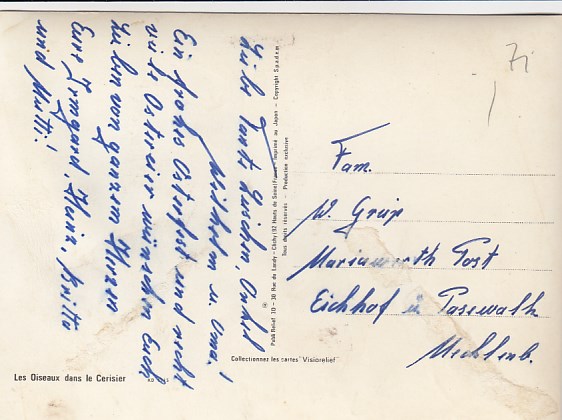 Liebe Tante Luschen, Onkel
Wilhelm u. Oma!
Ein frohes Osterfest und recht
viele Ostereier wünschen Euch
Lieben von ganzem Herzen
Eure Irmgard, Heinz, Britta
und Mutti!
7i
Fam.
W. Grüp
Marienwerth Post
Eichhof ü Pasewalk
Mecklenb.
PubliRelief 10 - 30 Rue de Landy - Clichy (92 Hauts de Seine) France - Imprimé au Japon - Copyright S.p.a.d.e.m.
Tous droits réservés - Production exclusive
Collectionnez les cartes "Visiorelief"
Les Oiseaux dans le Cerisier